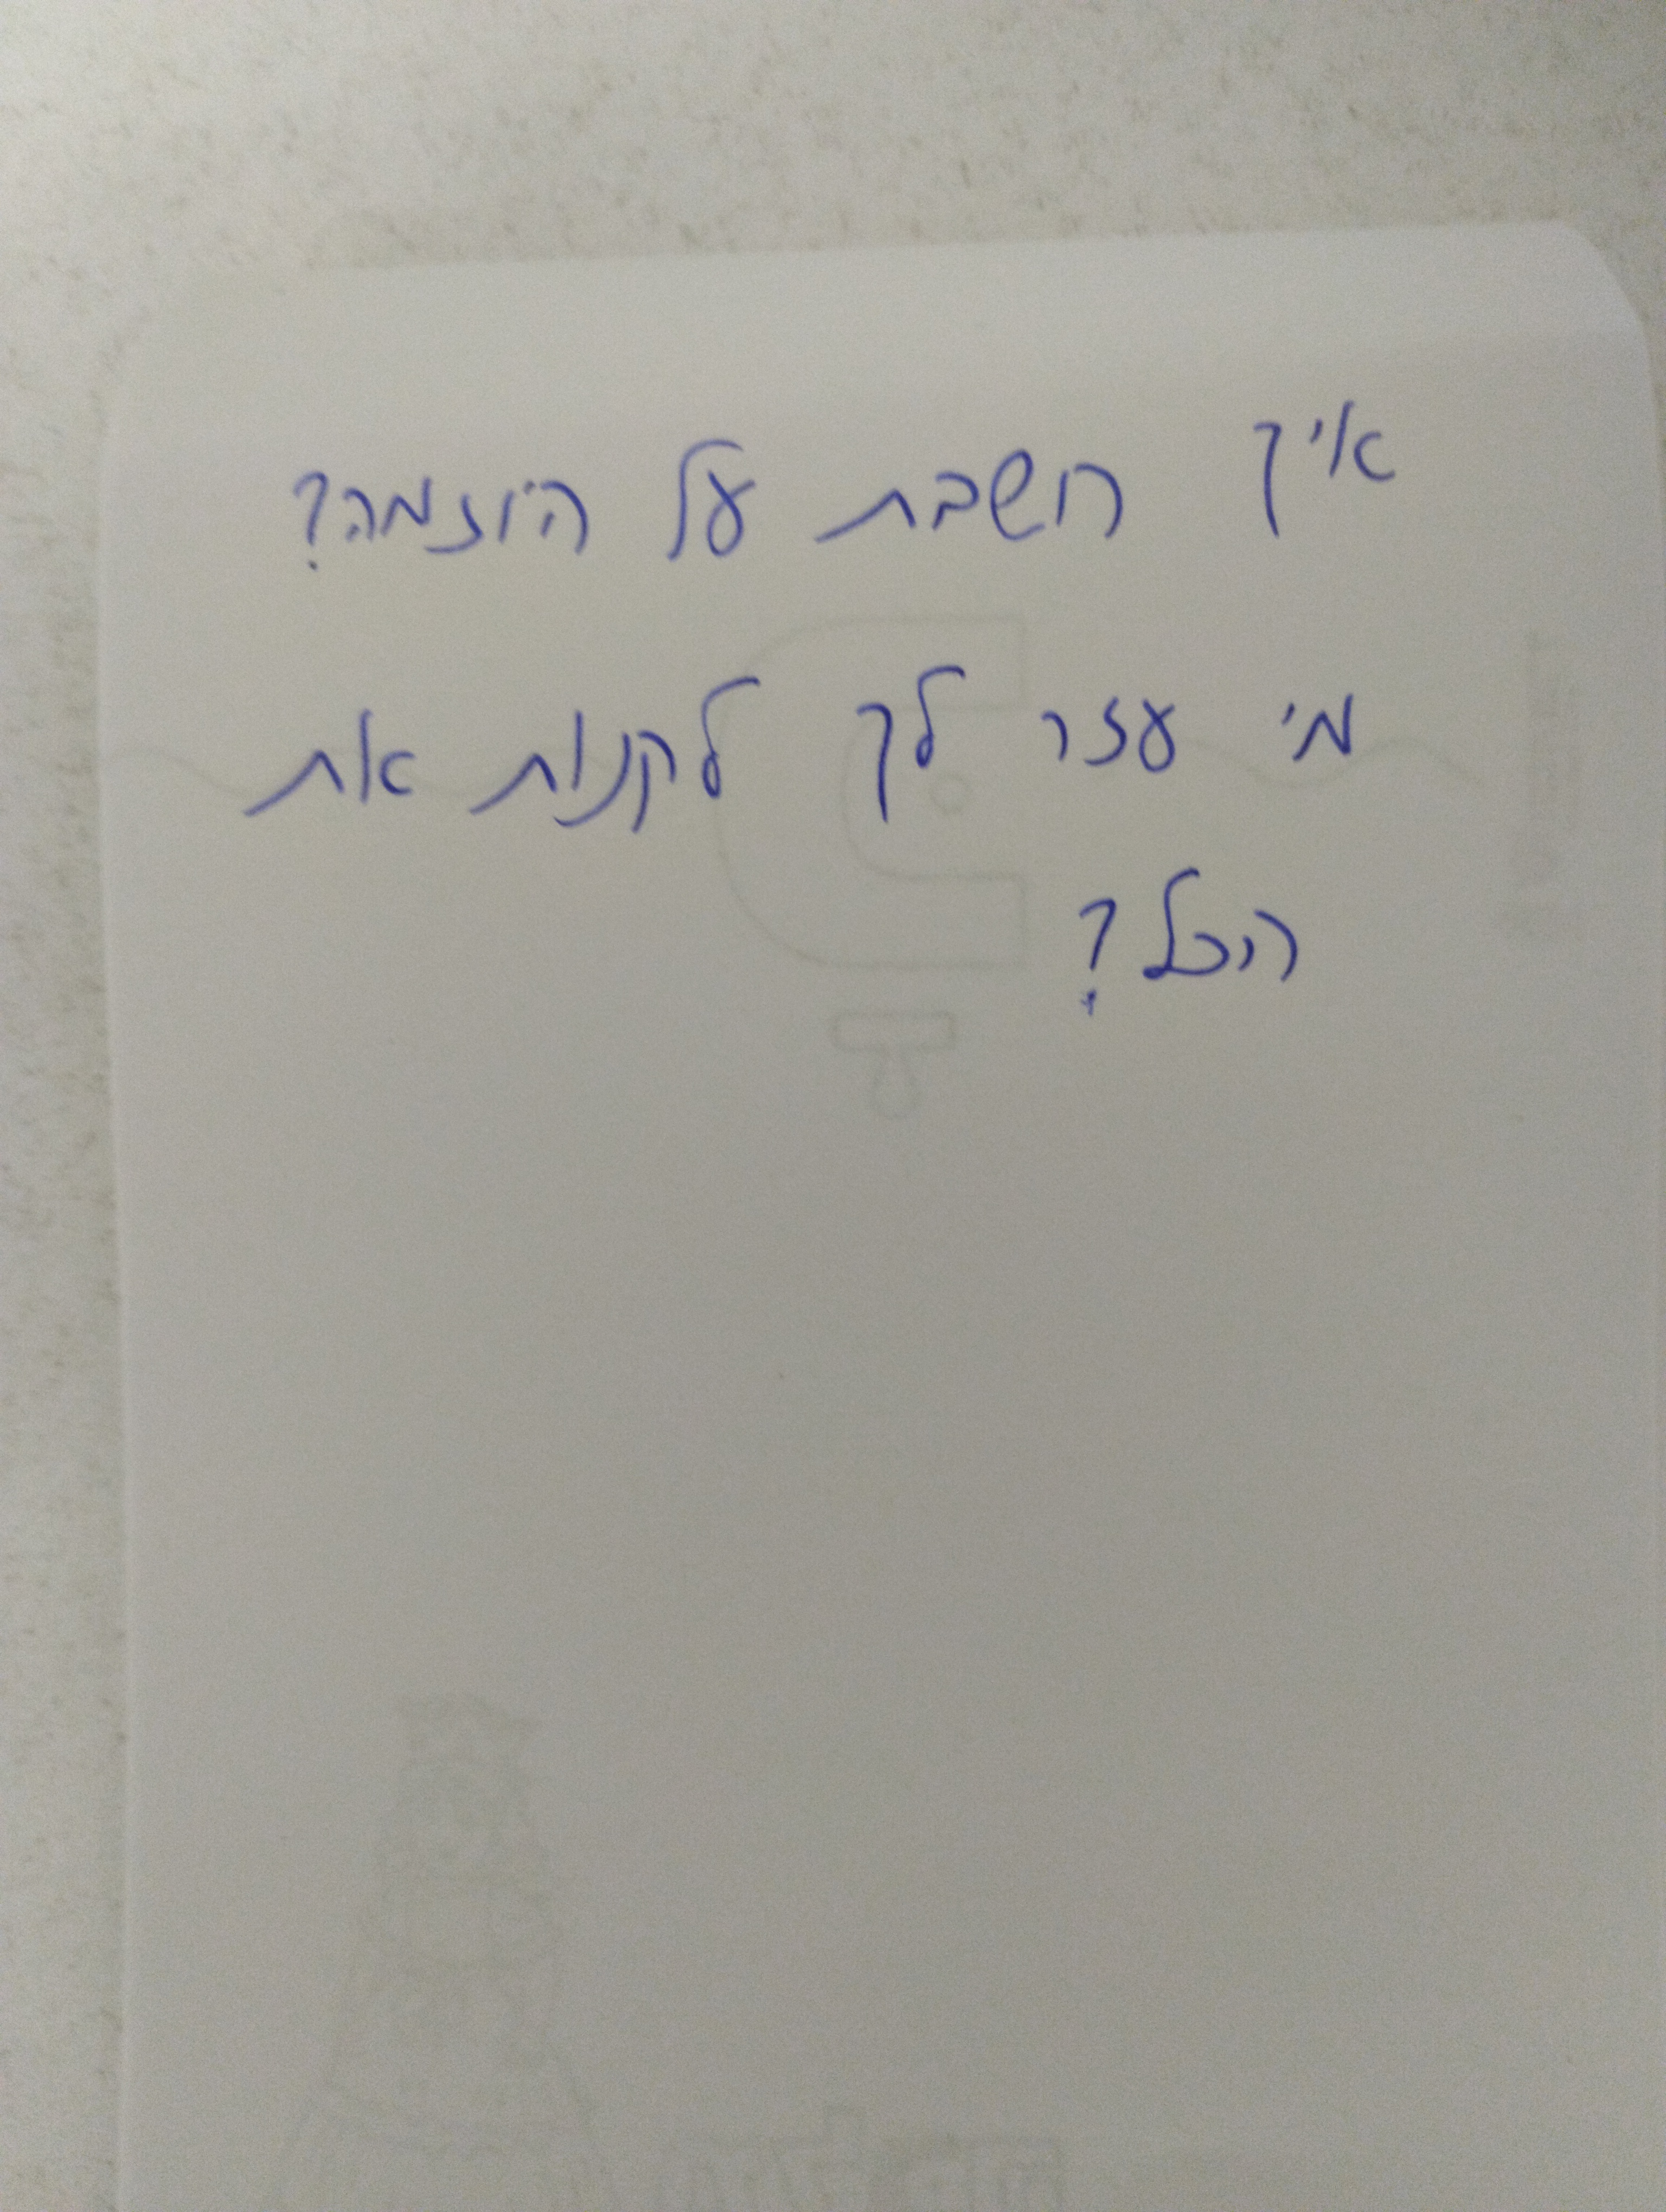 איך חשבת על היוזמה?
מי עזר לך לקנות את
הכל?